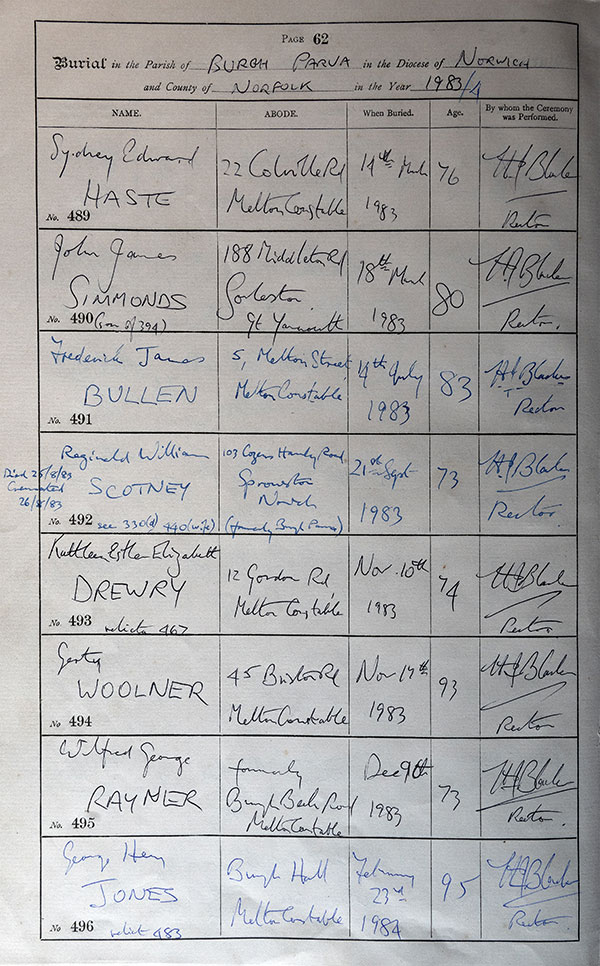 PAGE 62
Burial in the Parish of BURGH PARVA in the Diocese of NORWICH
and County of NORFOLK in the Year 1983/4
NAME. ABODE. When Buried. Age. By whom the Ceremony was Performed.
Sydney Edward 22 Colville Rd 14th March 76 H J Blacker
HASTE Melton Constable 1983 Rector
No. 489
John James 188 Middleton Rd 18th March 80 H J Blacker
SIMMONDS Gorleston 1983 Rector.
No. 490 (son of 394) Gt Yarmouth
Frederick James 5, Melton Street 14th July 83 H J Blacker
BULLEN Melton Constable 1983 Rector
No. 491
Reginald William 103 Cozens Hardy Road 21st Sept 73 H J Blacker
Died 25/8/83
Cremated
26/8/83
SCOTNEY Sprowston 1983 Rector.
Norwich
No. 492 see 330(d) 440(wife) (formerly Burgh Parva)
Kathleen Esther Elizabeth 12 Gordon Rd Nov. 10th 74 H J Blacker
DREWRY Melton Constable 1983 Rector
No. 493 relicta 467
Gerty 45 Briston Rd Nov 17th 93 H J Blacker
WOOLNER Melton Constable 1983 Rector
No. 494
Wilfred George formerly Dec 9th 73 H J Blacker
RAYNER Burgh Beck Road 1983 Rector.
No. 495 Melton Constable
George Henry Burgh Hall February 95 H J Blacker
JONES Melton Constable 23rd Rector.
No 496 relict 483 1984